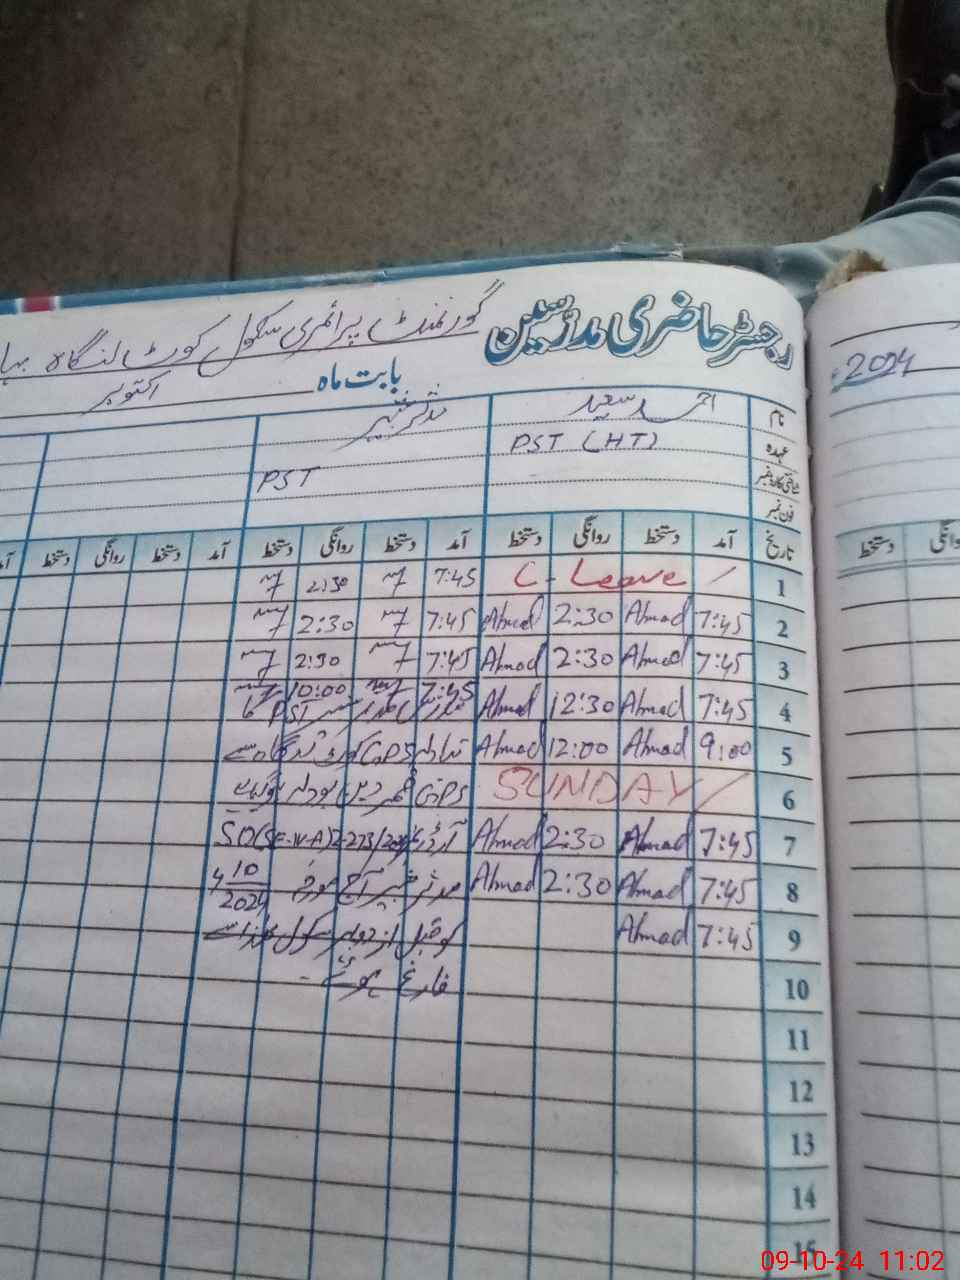 رجسٹر حاضری مدرسین گورنمنٹ پرائمری سکول کوٹ لنگاہ
بابت ماہ اکتوبر 2024
نام احمد سعید مدثر
عہدہ PST (HT) PST
شناختی کارڈ نمبر
فون نمبر
تاریخ آمد دستخط روانگی دستخط آمد دستخط روانگی دستخط آمد دستخط روانگی دستخط
1 C-Leave 7:45 2:30
2 7:45 Ahmad 2:30 Ahmad 7:45 2:30
3 7:45 Ahmad 2:30 Ahmad 7:45 2:30
4 7:45 Ahmad 12:30 Ahmad 7:45 10:00
PST
5 9:00 Ahmad 12:00 Ahmad تبادلہ GPS کوٹ لنگاہ سے
6 SUNDAY GPS
7 7:45 Ahmad 2:30 Ahmad آرڈر SO(SE-IV-A)2-273/2024
8 7:45 Ahmad 2:30 Ahmad مدثر آج مورخہ 4/10/2024
9 7:45 Ahmad کو قبل از دوپہر سکول ہذا سے
10 فارغ ہوئے -
11
12
13
14
15
دستخط روانگی
09-10-24 11:02